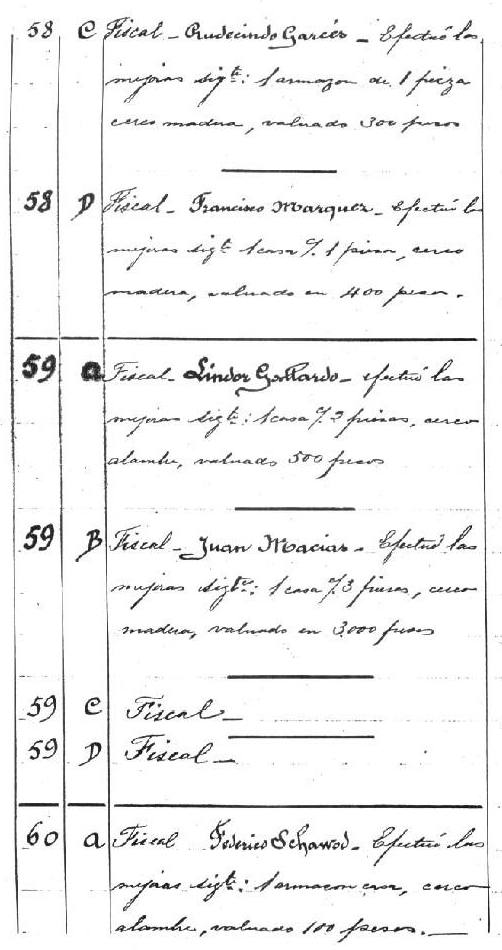 58 C Fiscal - Rudecindo Garcés - Efectuó las
mejoras sigte: 1 armazon de 1 pieza
cerco madera, valuado 300 pesos
58 D Fiscal - Francisco Marquez - Efectuó las
mejoras sigte 1 casa % 1 pieza, cerco
madera, valuado en 400 pesos.
59 a Fiscal - Lindor Gallardo - efectuó las
mejoras sigte: 1 casa % 2 piezas, cerco
alambre, valuado 500 pesos
59 B Fiscal - Juan Macias - Efectuó las
mejoras sigtes: 1 casa % 3 piezas, cerco
madera, valuado en 3.000 pesos
59 C Fiscal -
59 D Fiscal -
60 a Fiscal Federico Schawod - Efectuó las
mejoras sigte: 1 armacon, cerco
alambre, valuado 100 pesos. -